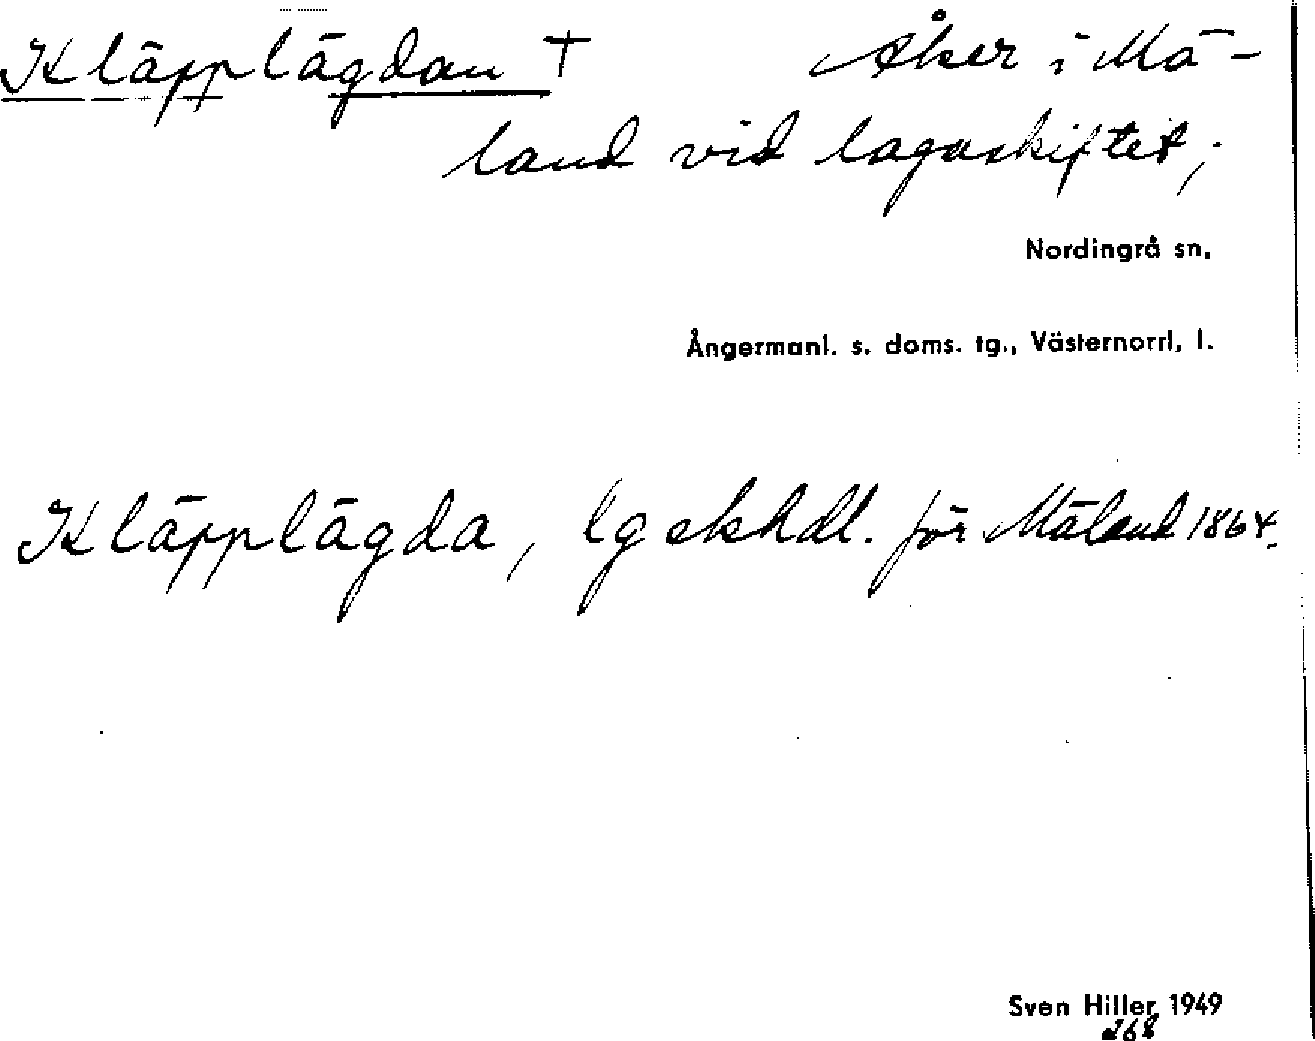 Kläpplägdan † Åker i Mä-
land vid lagaskiftet;
Nordingrå sn,
Ångermanl. s. doms. tg., Västernorrl. l.
Kläpplägda, lgskhdl. för Mäland 1864.
Sven Hiller, 1949
268